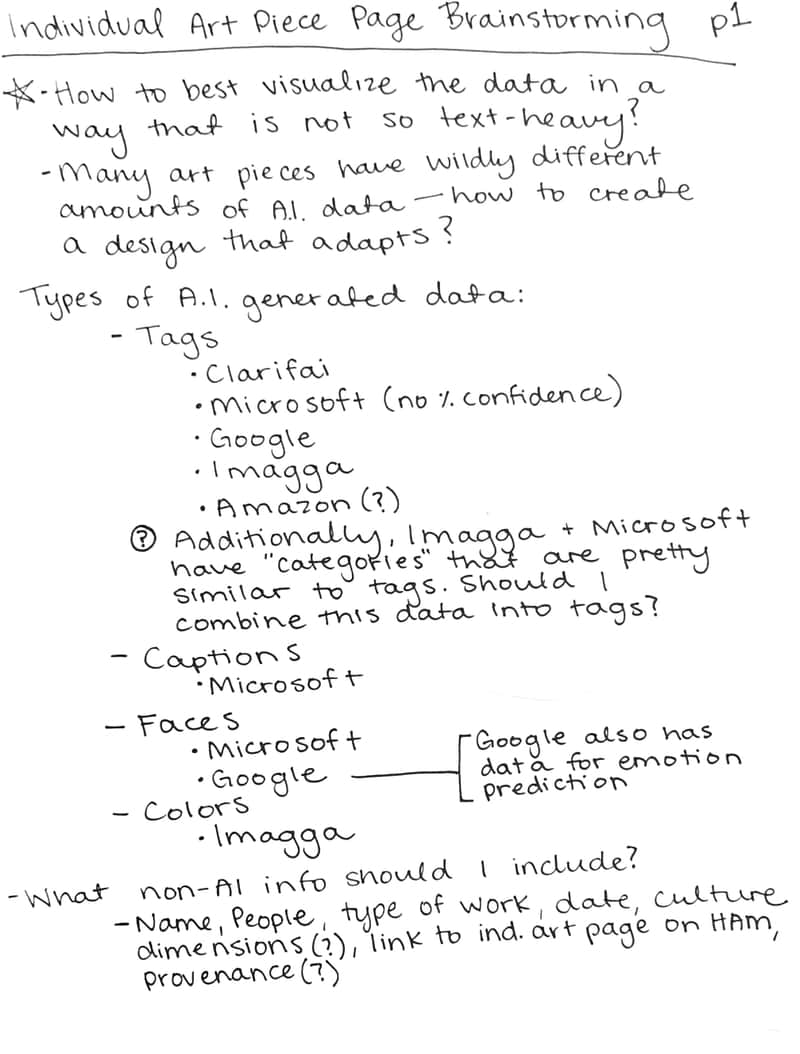 Individual Art Piece Page Brainstorming p1
☆-How to best visualize the data in a
way that is not so text-heavy?
-Many art pieces have wildly different
amounts of A.I. data — how to create
a design that adapts?
Types of A.I. generated data:
- Tags
• Clarifai
• Microsoft (no % confidence)
• Google
• Imagga
• Amazon (?)
? Additionally, Imagga + Microsoft
have "categories" that are pretty
similar to tags. Should I
combine this data into tags?
- Captions
• Microsoft
- Faces
• Microsoft
• Google
Google also has
data for emotion
prediction
- Colors
• Imagga
-What non-AI info should I include?
-Name, People, type of work, date, culture
dimensions(?), link to ind. art page on HAM,
provenance(?)